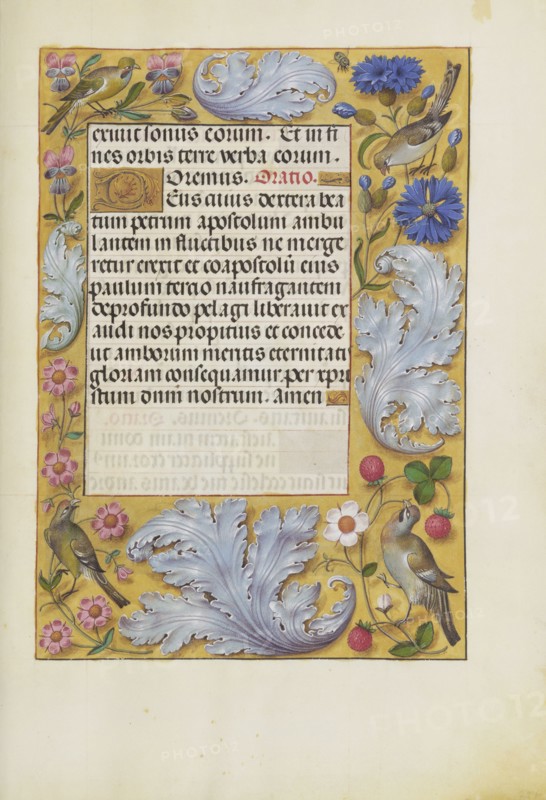 exiuit sonus eorum. Et in fi
nes orbis terre verba eorum.
Oremus. Oratio.
Deus cuius dextera bea
tum petrum apostolum ambu
lantem in fluctibus ne merge
retur erexit et coapostolū eius
paulum tercio naufragantem
deprofundo pelagi liberauit ex
audi nos propitius et concede
ut amborum meritis eternitatis
gloriam consequamur. per xpri
stum dnm nostrum. Amen
PHOTO12